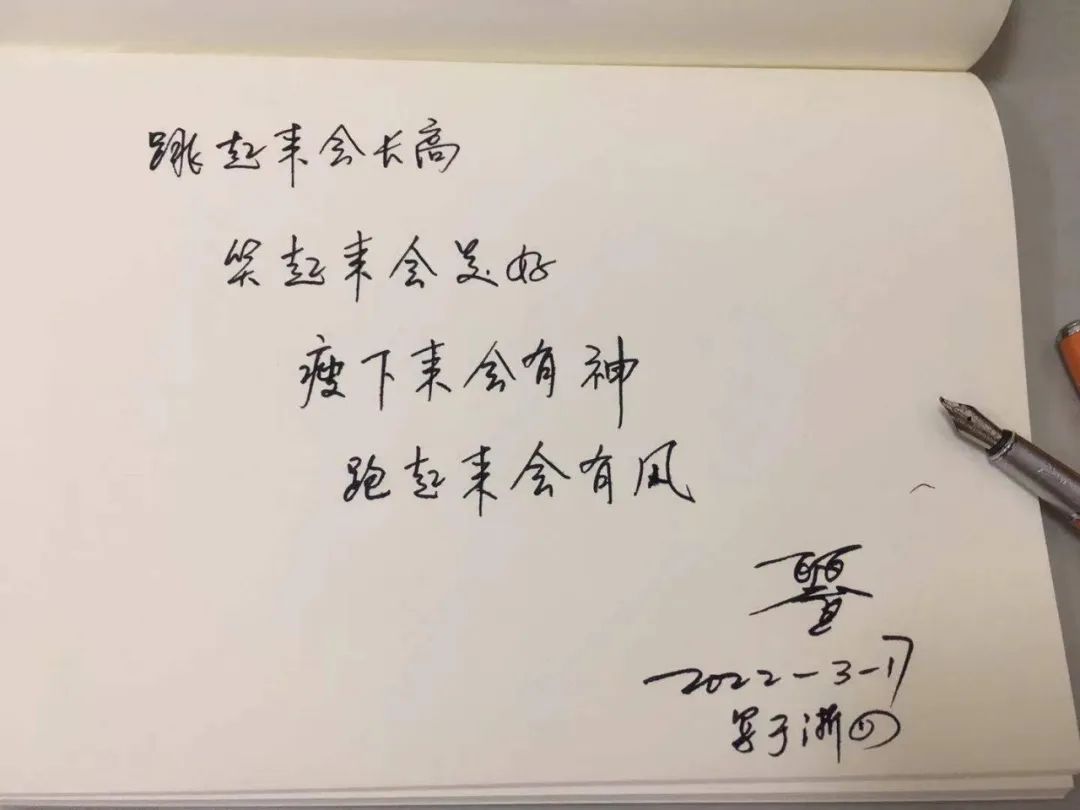 跳起来会长高
笑起来会美好
瘦下来会有神
跑起来会有风
2022-3-17
写于浙